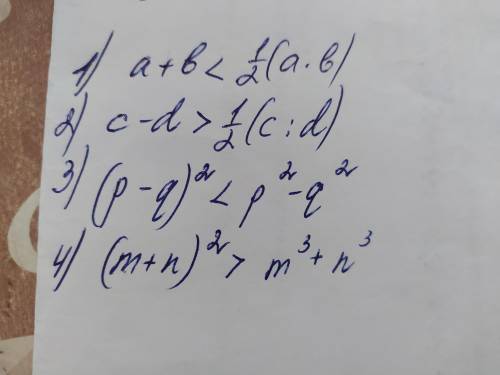 1) a+b < ½(a·b)
2) c-d > ½(c:d)
3) (p-q)² < p²-q²
4) (m+n)² > m³+n³